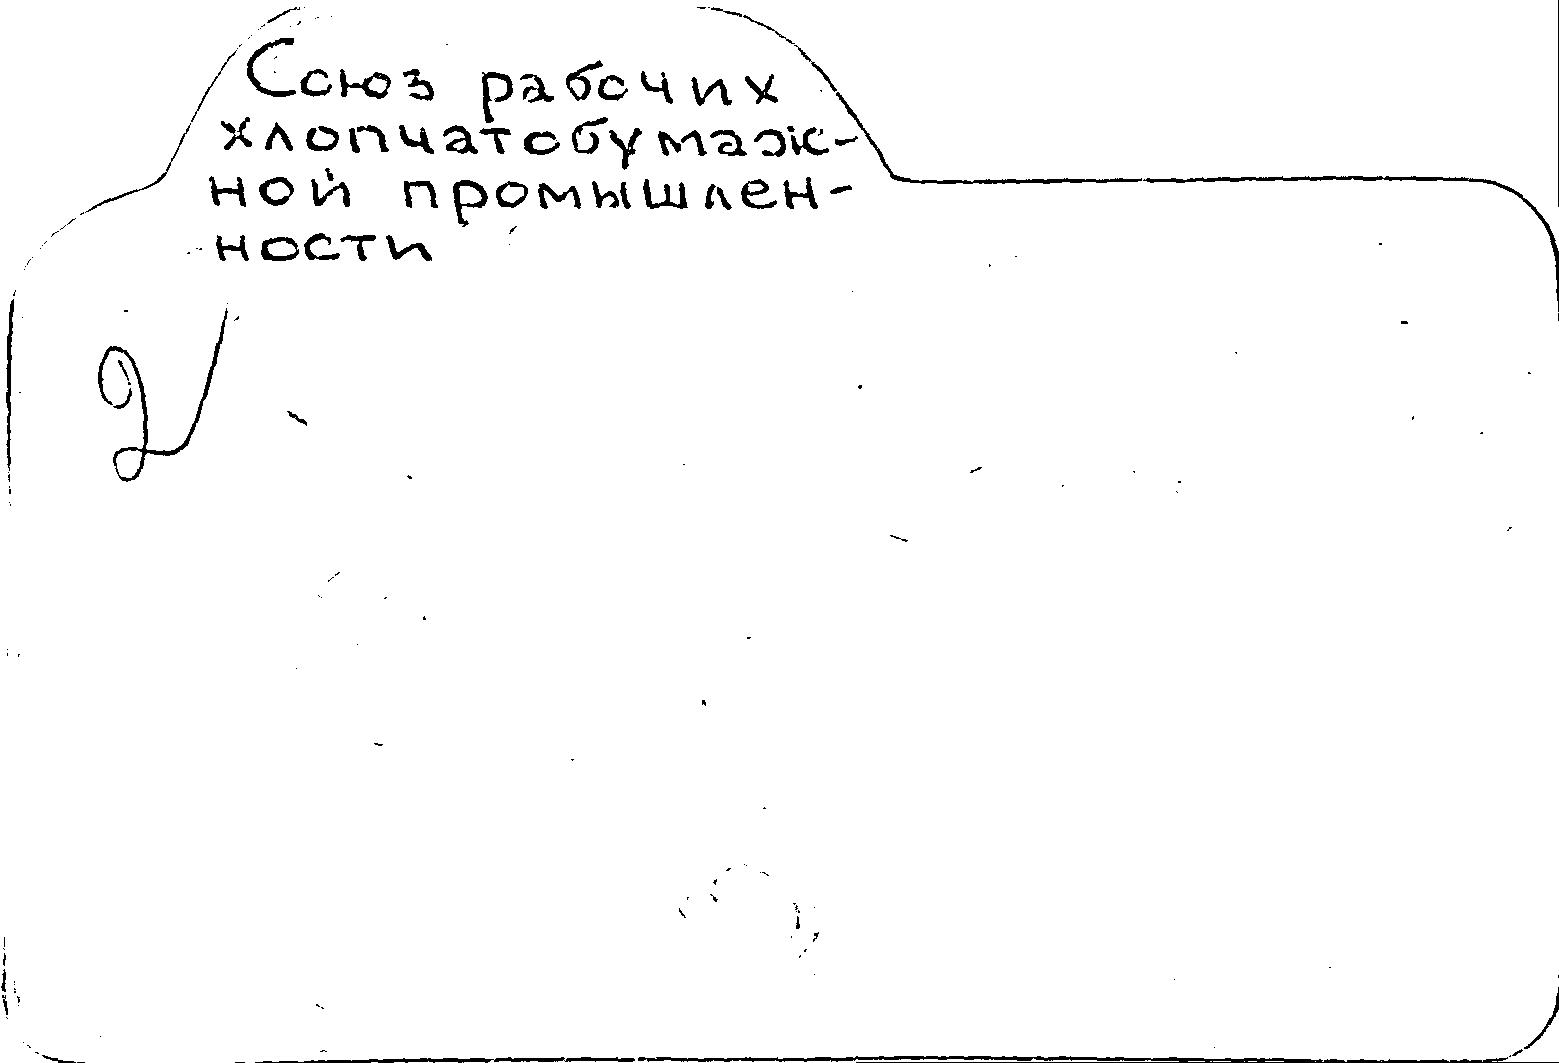 Союз рабочих
хлопчатобумаж-
ной промышлен-
ности
2